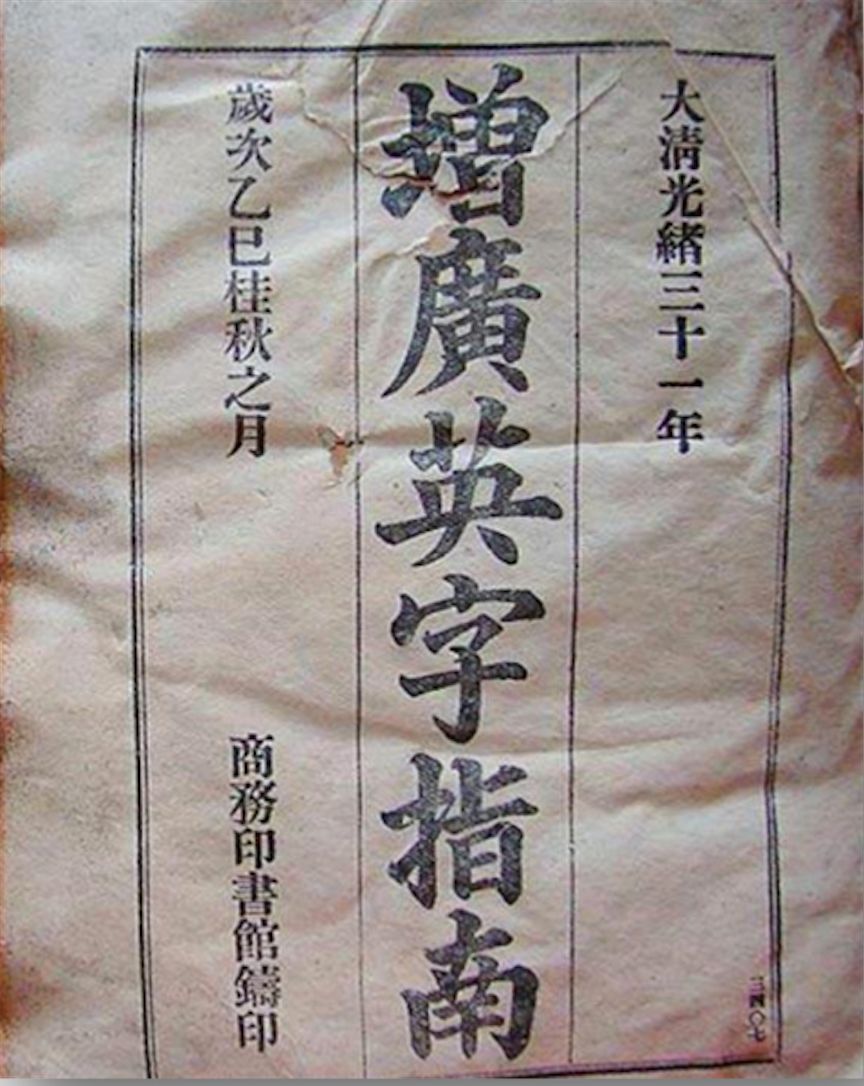 大清光緒三十一年
增廣英字指南
歲次乙巳桂秋之月
商務印書館鑄印
三四〇七